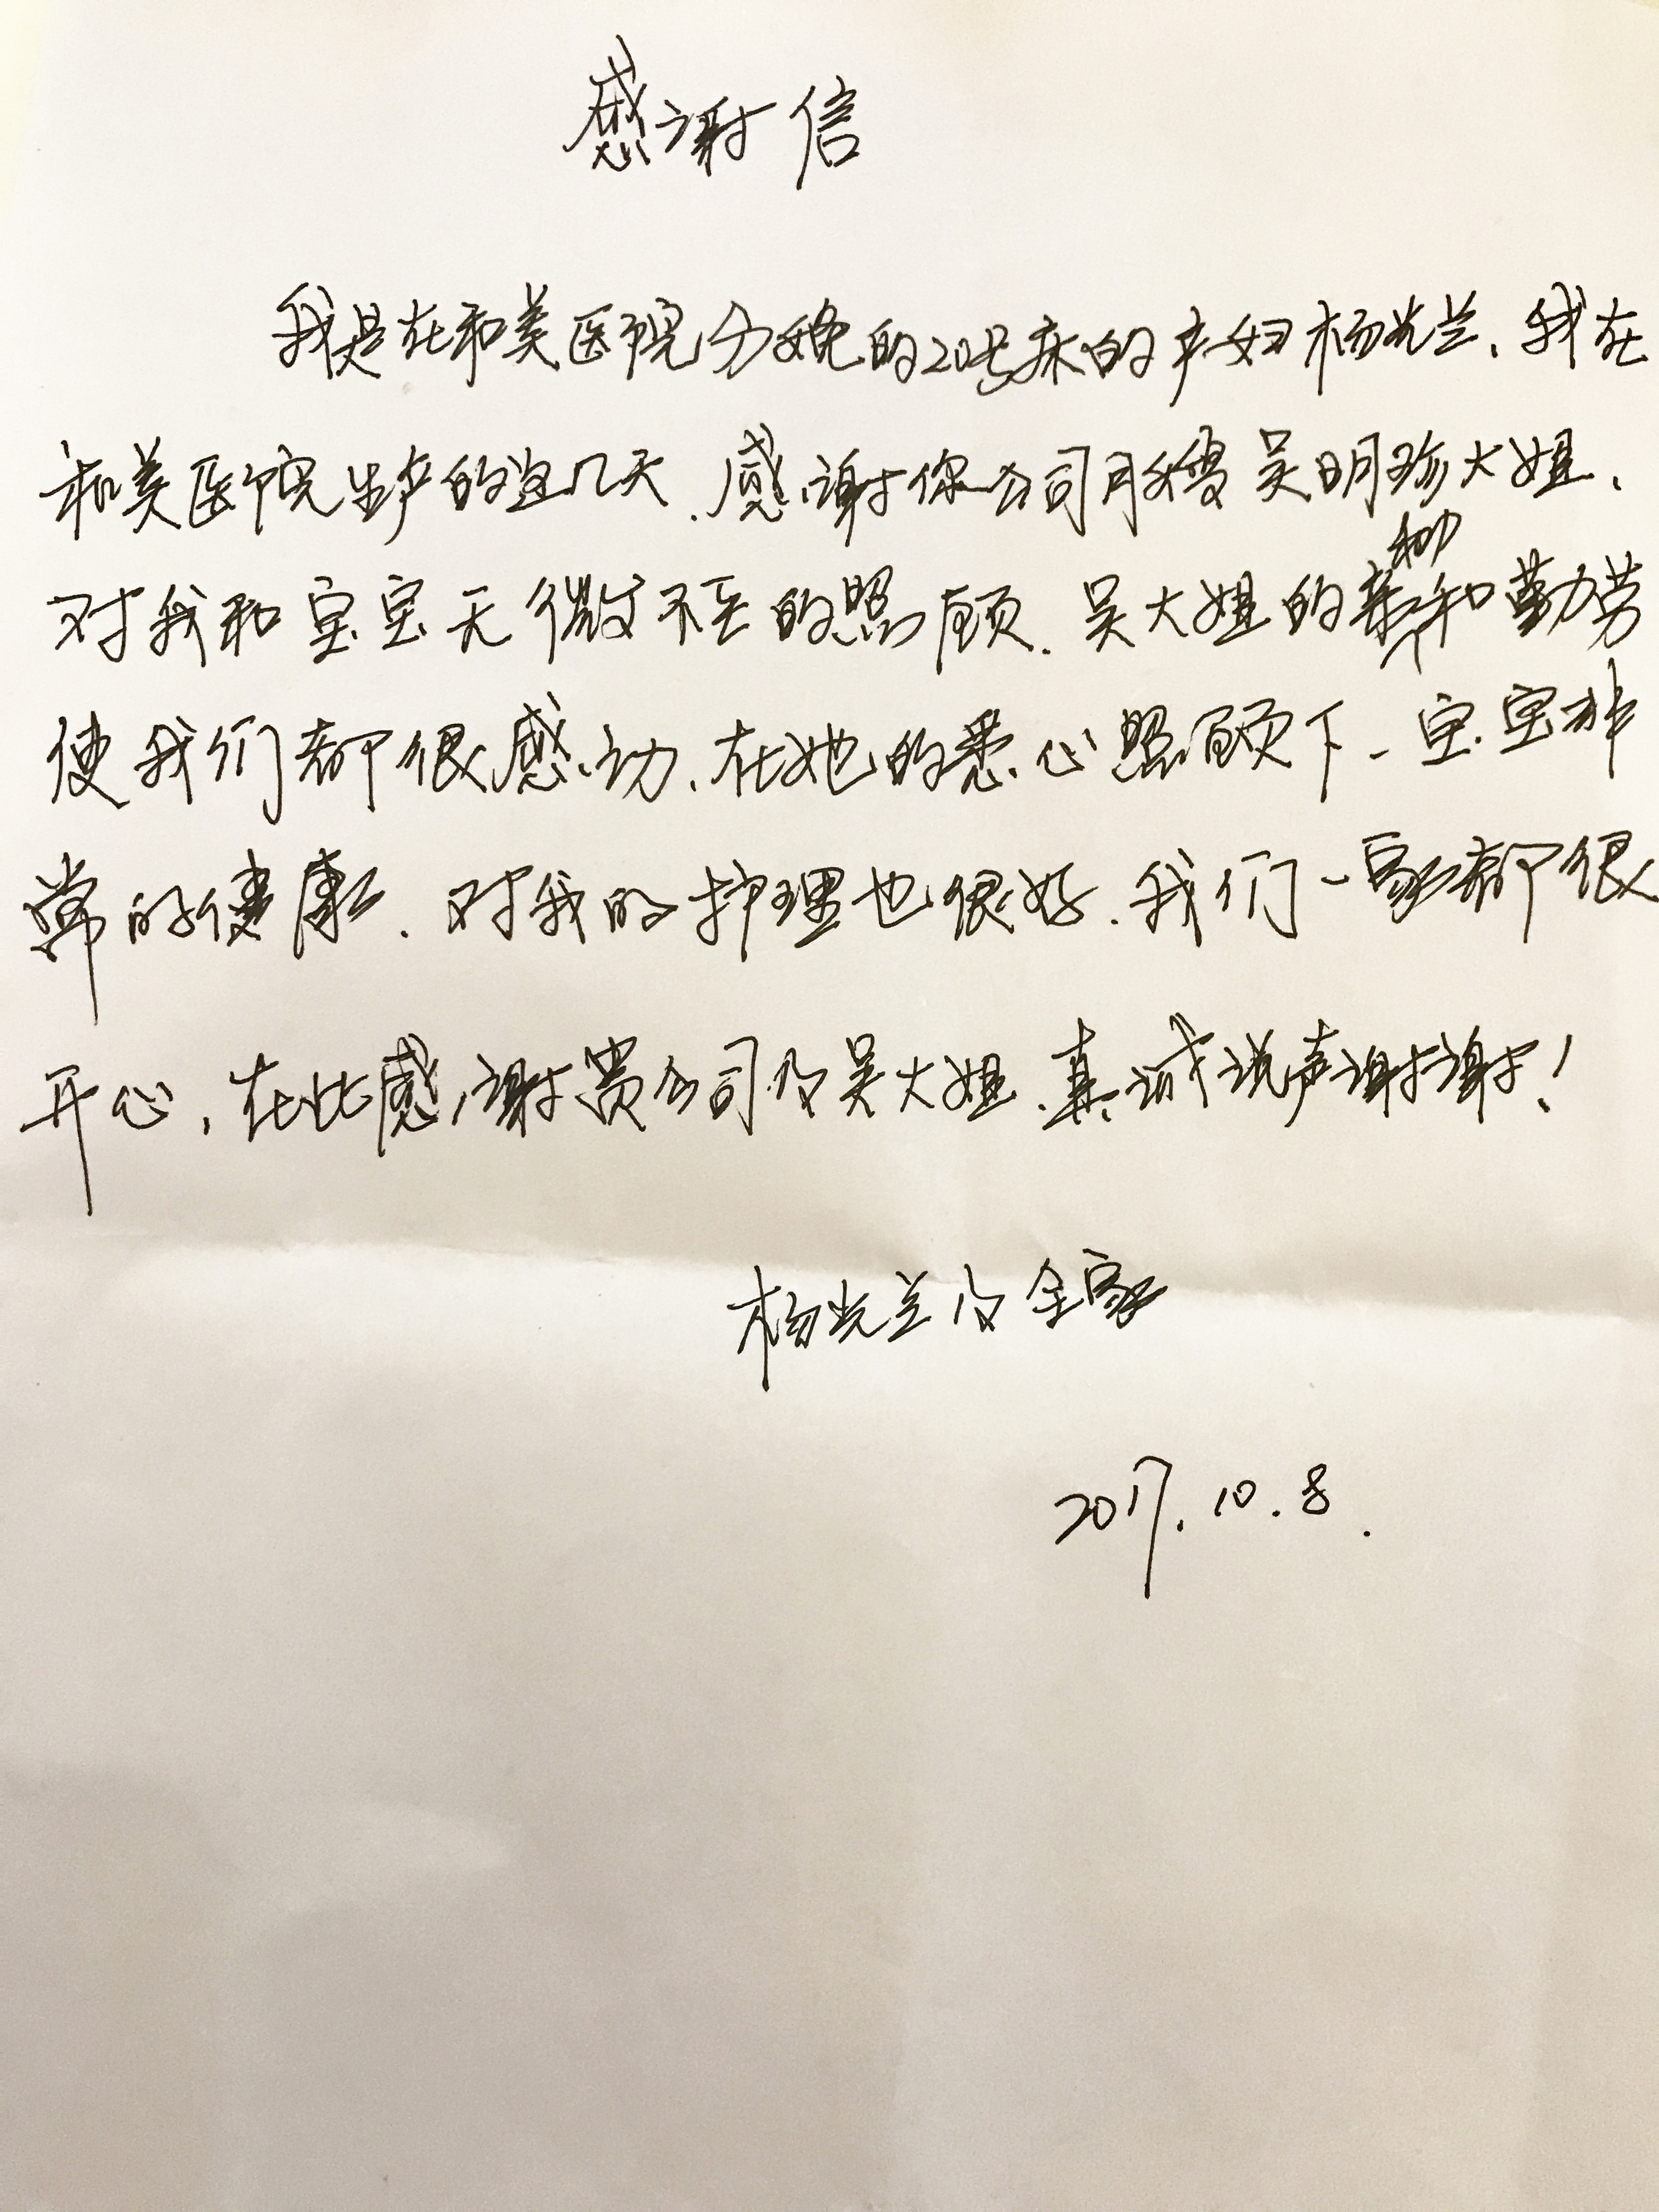 感谢信
我是在和美医院分娩的20号床的产妇杨光兰、我在
和美医院生产的这几天、感谢你公司月嫂吴明珍大姐、
对我和宝宝无微不至的照顾. 吴大姐的亲和和勤劳
使我们都很感动、在她的悉心照顾下、宝宝非
常的健康. 对我的护理也很好. 我们一家都很
开心, 在此感谢贵公司及吴大姐、真诚说声谢谢!
杨光兰及全家
2017.10.8.